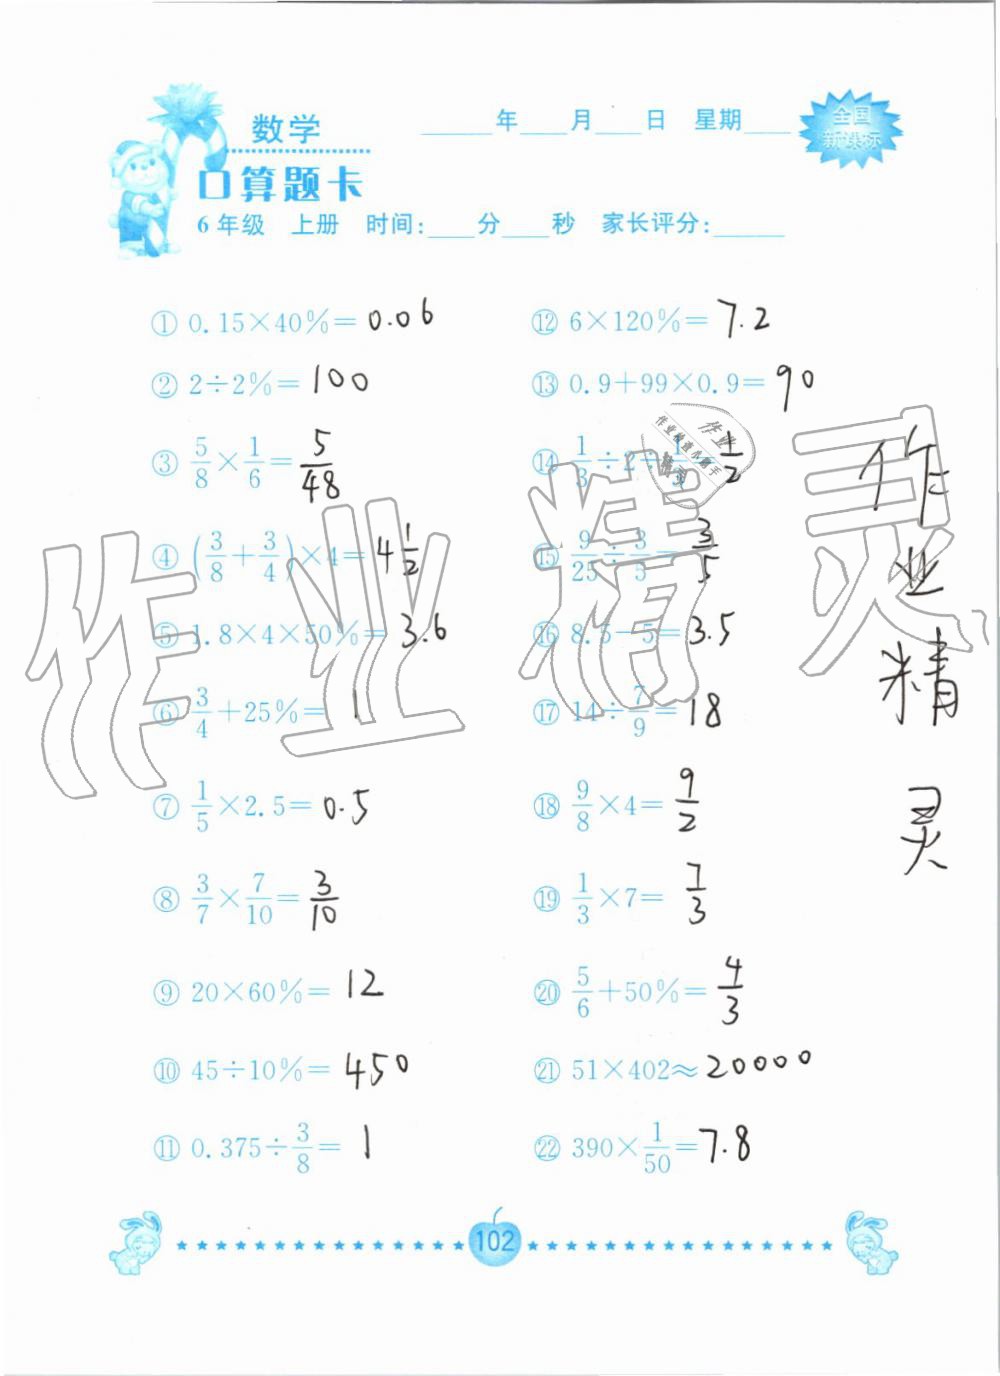 数学
口算题卡
____年____月____日 星期____
全国
新课标
6年级 上册 时间:____分____秒 家长评分:____
① 0.15×40%=0.06
② 2÷2%=100
③ 5/8×1/6=5/48
④ (3/8+3/4)×4=4 1/2
⑤ 1.8×4×50%=3.6
⑥ 3/4+25%=1
⑦ 1/5×2.5=0.5
⑧ 3/7×7/10=3/10
⑨ 20×60%=12
⑩ 45÷10%=450
⑪ 0.375÷3/8=1
⑫ 6×120%=7.2
⑬ 0.9+99×0.9=90
⑭ 1/3÷2÷ 1/2
⑮ 9/25÷3/5=3/5
⑯ 8.5-5=3.5
⑰ 14÷7/9=18
⑱ 9/8×4=9/2
⑲ 1/3×7=7/3
⑳ 5/6+50%=4/3
㉑ 51×402≈20000
㉒ 390×1/50=7.8
作业精灵
作业精灵
102